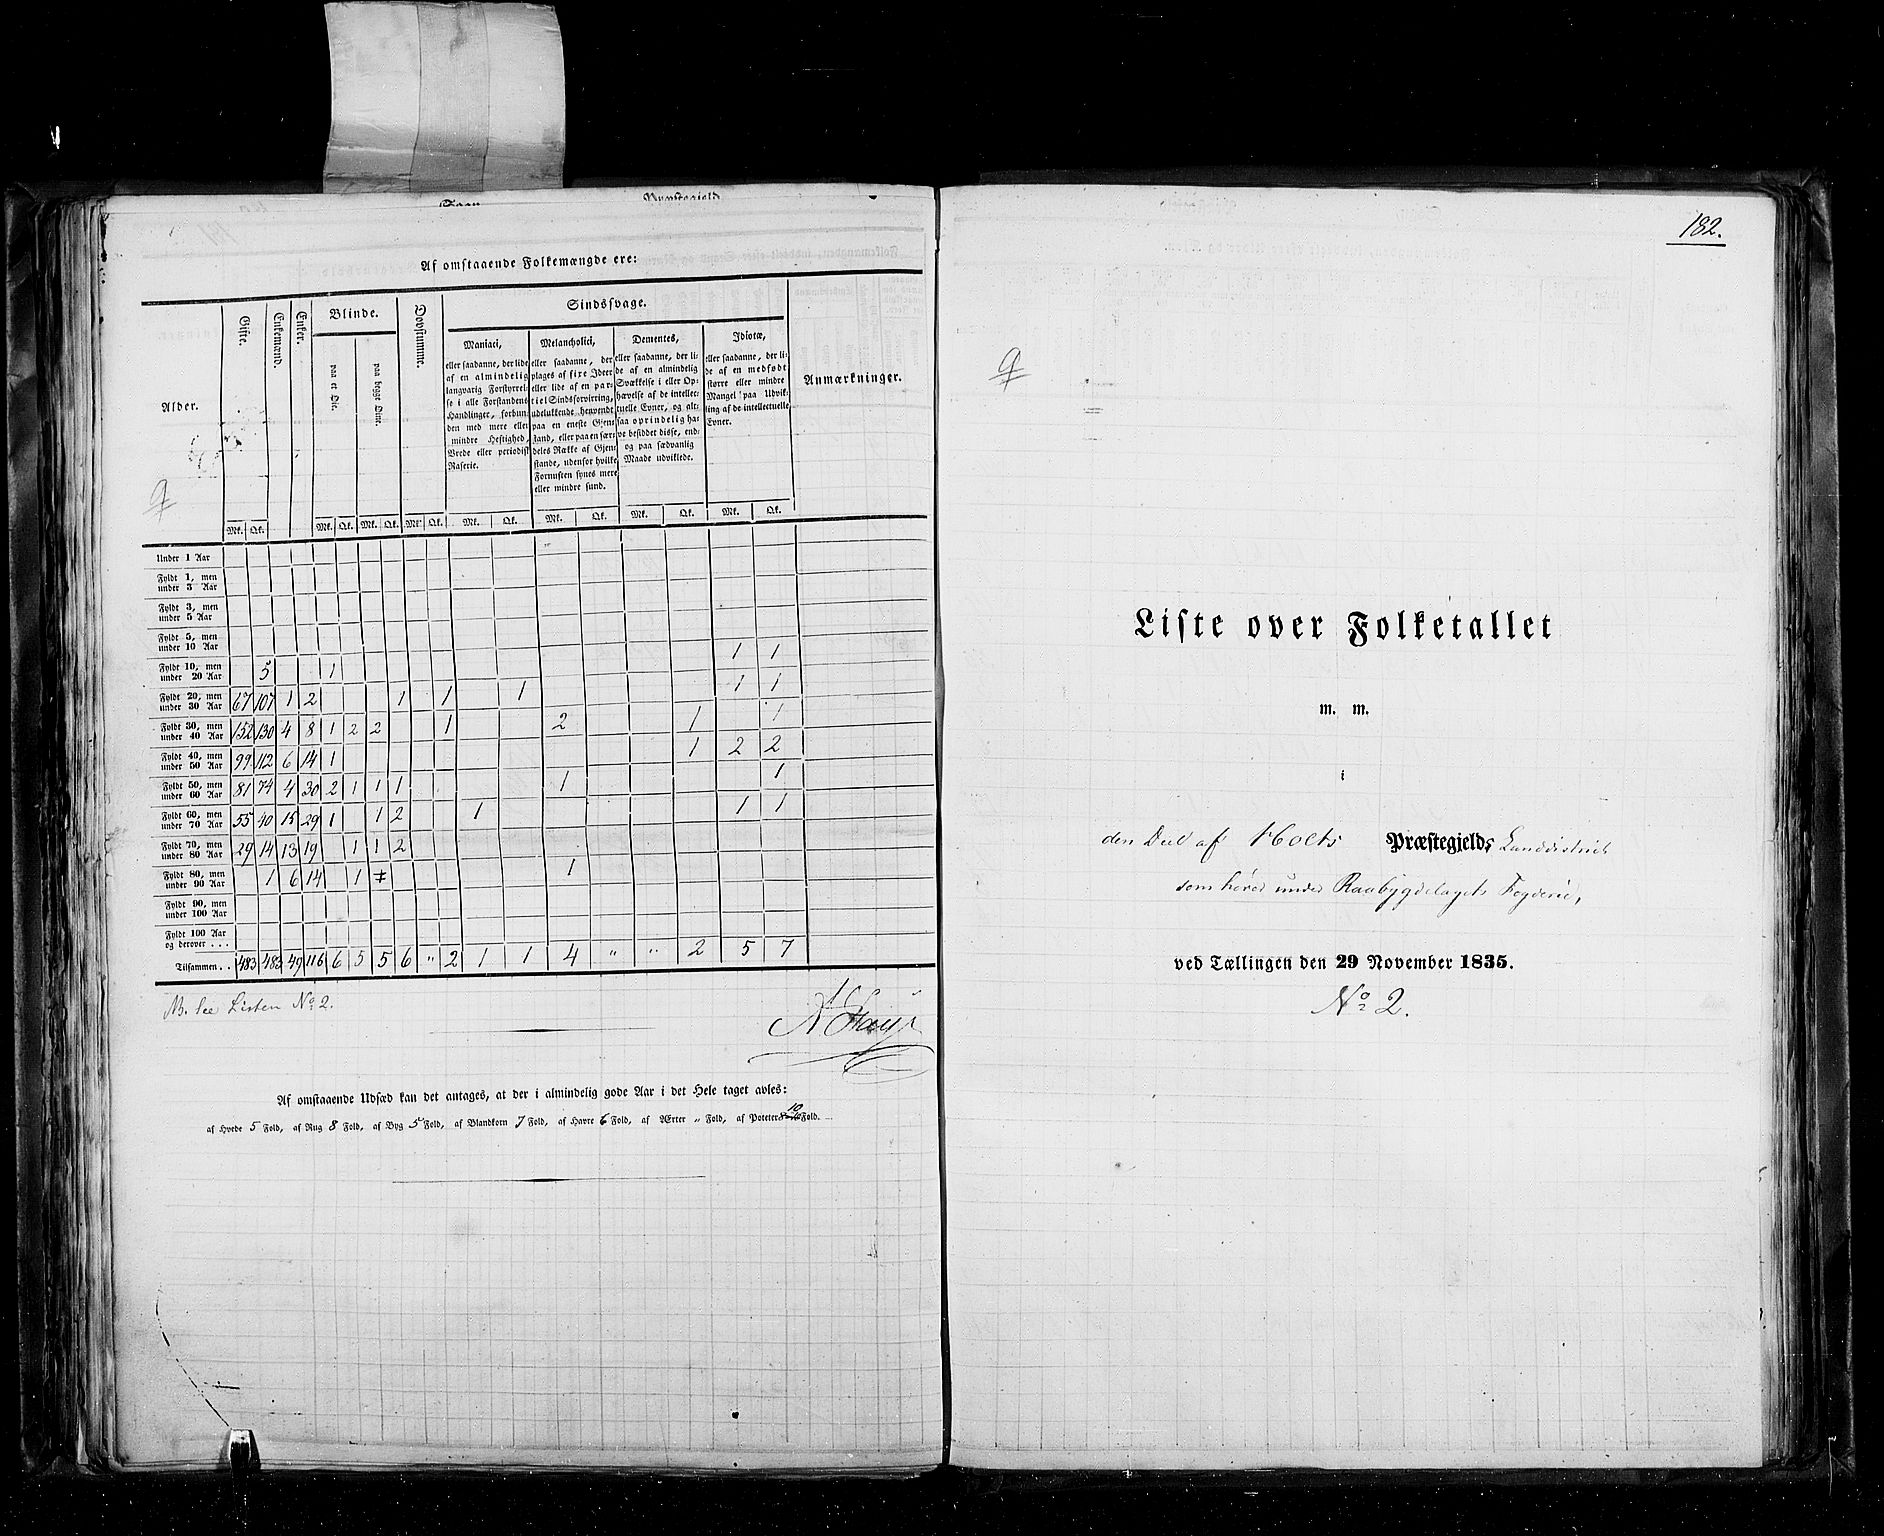 Præstegjeld
Af omstaaende Folkemængde ere:
Alder.
Gifte.
Enkemænd.
Enker.
Blinde.
paa et Øie.
paa begge Øine.
Døvstumme.
Sindssvage.
Maniaci,
eller saadanne, der lide
af en almindelig
langvarig Forstyrrel-
se i alle Forstandens
Handlinger, forbun-
den med mere eller
mindre Heftighed,
Vrede eller periodisk
Raserie.
Melancholici,
eller saadanne, der
plages af fixe Ideer
eller lide af en par-
tiel Sindsforvirring,
udelukkende henvendt
paa en eneste Gjen-
stand, eller paa en sær-
deles Række af Gjen-
stande, udenfor hvilke
Fornuften synes mere
eller mindre sund.
Dementes,
eller saadanne, der li-
de af en almindelig
Svækkelse i eller Op-
hævelse af de intellec-
tuelle Evner, og alt-
saa oprindelig ha-
ve besiddet disse, end-
og paa sædvanlig
Maade udviklede.
Idiotæ,
eller saadanne, der li-
de af en medfødt
større eller mindre
Mangel paa Udvik-
ling af de intellectuelle
Evner.
Anmærkninger.
Mk. Qk. Mk. Qk. Mk. Qk. Mk. Qk. Mk. Qk. Mk. Qk. Mk. Qk. Mk. Qk.
Under 1 Aar
Fyldt 1, men
under 3 Aar
Fyldt 3, men
under 5 Aar
Fyldt 5, men
under 10 Aar 1 1
Fyldt 10, men
under 20 Aar 5 1 1 1
Fyldt 20, men
under 30 Aar 67 107 1 2 1 1 1 1
Fyldt 30, men
under 40 Aar 152 130 4 8 1 2 2 1 2 1 2 2
Fyldt 40, men
under 50 Aar 99 112 6 14 1 1
Fyldt 50, men
under 60 Aar 81 74 4 30 2 1 1 1 1 1 1
Fyldt 60, men
under 70 Aar 55 40 15 29 1 1 2 1
Fyldt 70, men
under 80 Aar 29 14 13 19 1 1 2
Fyldt 80, men
under 90 Aar 1 6 14 1 1
Fyldt 90, men
under 100 Aar
Fyldt 100 Aar
og derover . . .
Tilsammen . . 483 483 49 116 6 5 5 6 " 2 1 1 4 " " 2 5 7
NB. see Listen No 2.
Af omstaaende Udsæd kan det antages, at der i almindelig gode Aar i det Hele taget avles:
af Hvede 5 Fold, af Rug 8 Fold, af Byg 5 Fold, af Blandkorn 7 Fold, af Havre 6 Fold, af Ærter " Fold, af Poteter 10 Fold.
182.
Liste over Folketallet
m. m.
i
den Deel af Holts Præstegjelds Landdistrict
som hører under Raabygdelagets Fogderie,
ved Tællingen den 29 November 1835.
No 2.